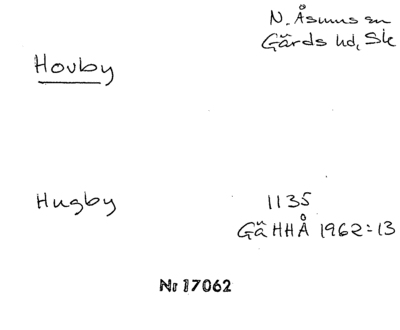 N. Åsums sn
Gärds hd, Sk
Hovby
Hugby
1135
GäHHÅ 1962:13
Nr 17062